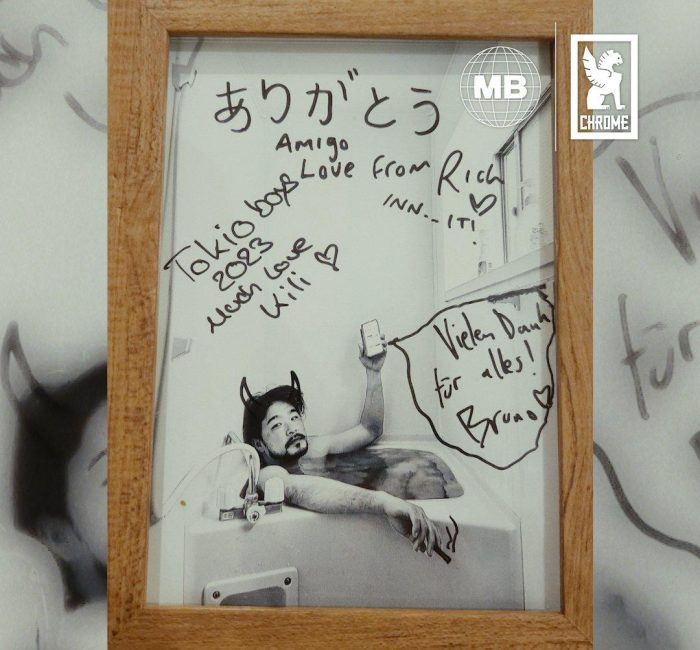 MB
CHROME
ありがとう
Amigo
Love from Rich
INN...IT!
Tokio boys
2023
Much Love
Kili
Vielen Dank
für alles!
Bruno
für